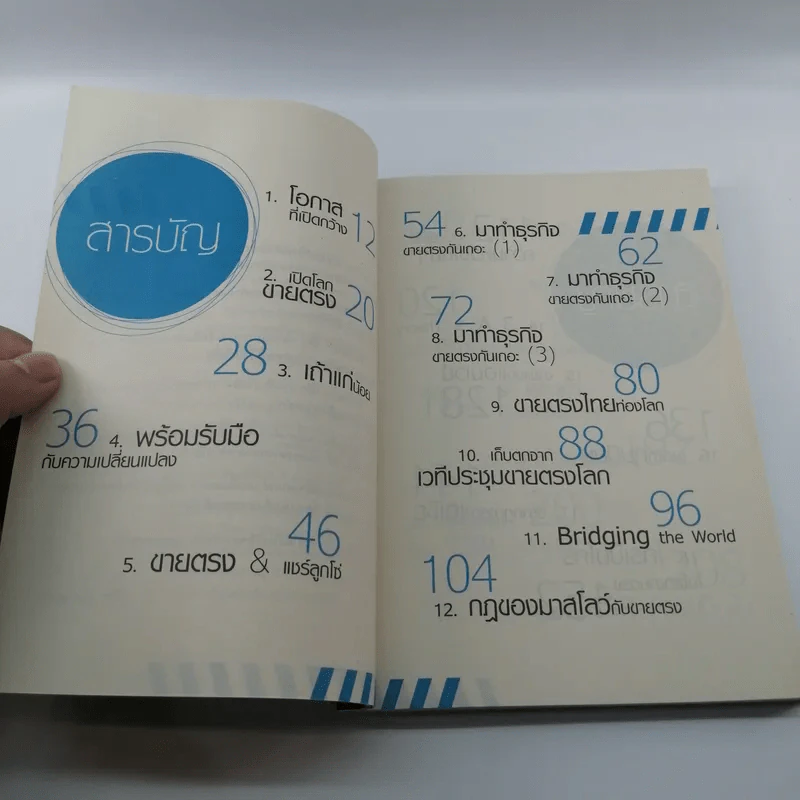 สารบัญ
1. โอกาส
ที่เปิดกว้าง 12
2. เปิดโลก
ขายตรง 20
28 3. เถ้าแก่น้อย
36 4. พร้อมรับมือ
กับความเปลี่ยนแปลง
46
5. ขายตรง & แชร์ลูกโซ่
54 6. มาทำธุรกิจ
ขายตรงกันเถอะ (1)
62
7. มาทำธุรกิจ
ขายตรงกันเถอะ (2)
72
8. มาทำธุรกิจ
ขายตรงกันเถอะ (3)
80
9. ขายตรงไทยท่องโลก
10. เก็บตกจาก 88
เวทีประชุมขายตรงโลก
96
11. Bridging the World
104
12. กฎของมาสโลว์กับขายตรง